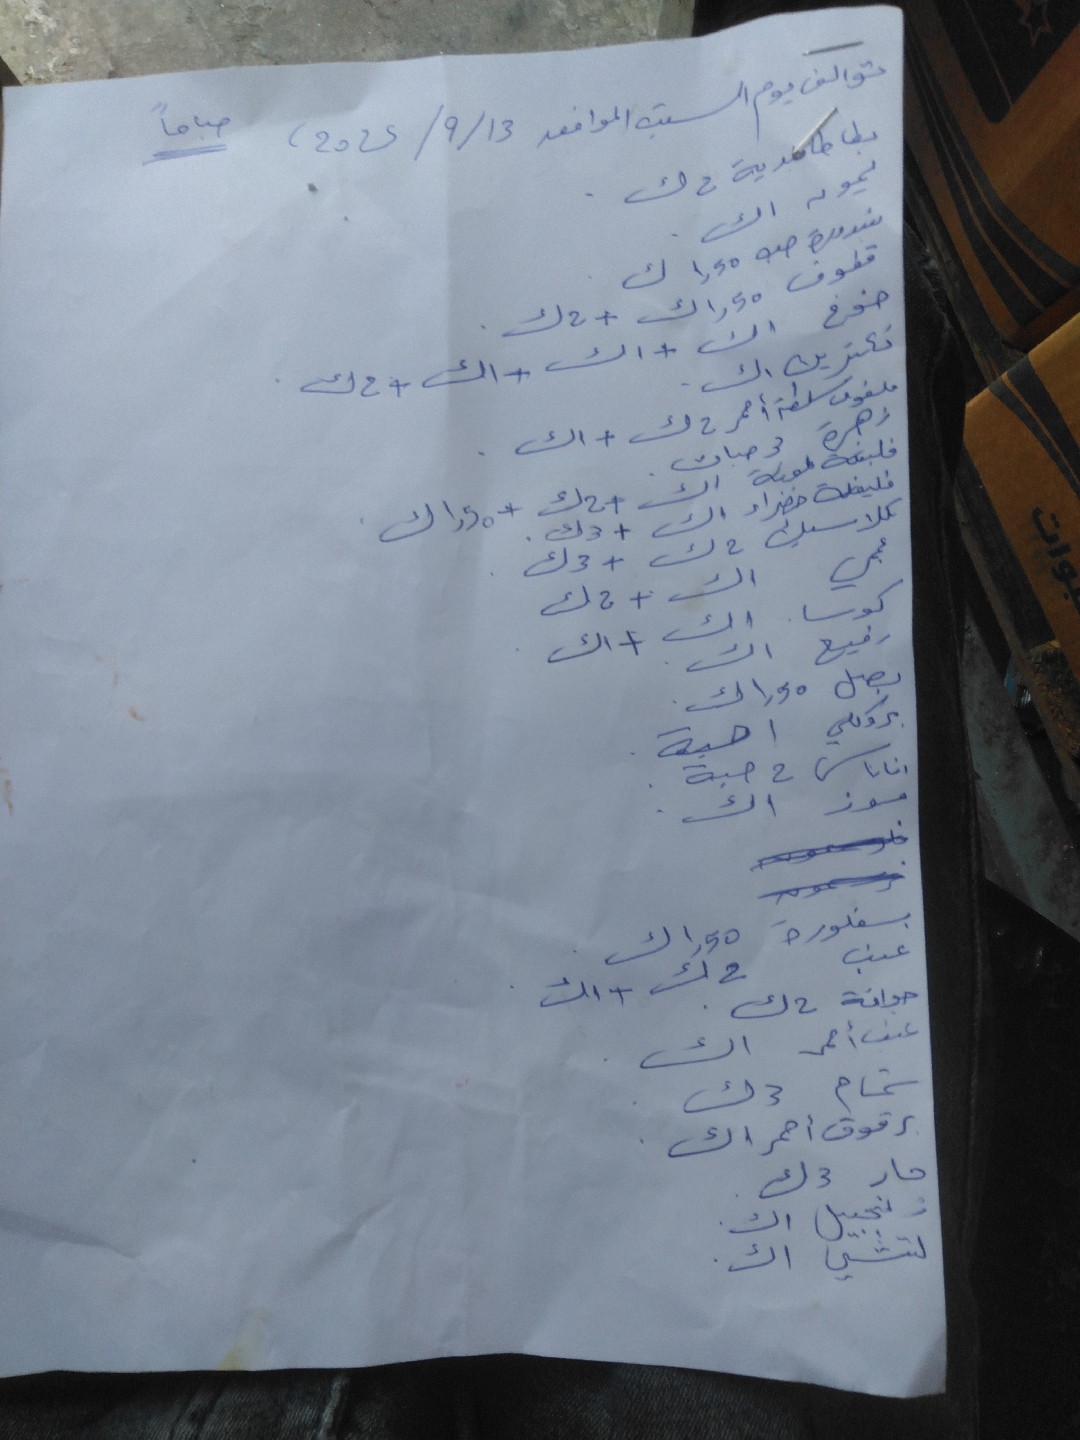 توالف يوم السبت الموافق 2025/9/13) صباحاً
بطاطا هدية 2ك.
ليمون 1ك.
بندورة حب 1,50 ك.
قطوف 1,50ك + 2ك.
خفرج 1ك + 1ك + 1ك + 2ك.
نكترين 1ك.
ملفوف سلطة أحمر 2ك + 1ك.
زهرة 3 حبات.
فليفلة ملونة 1ك + 2ك + 1,50ك.
فليفلة خضراء 1ك + 3ك.
كلاسيكي 2ك + 3ك.
عجمي 1ك + 2ك
كوسا 1ك + 1ك.
رفيع 1ك.
بصل 1,50ك.
بروكلي 1 حبة.
اناناس 2 حبة.
موز 1ك.
بسفلورة 1,50ك.
عنب 2ك + 1ك.
جوافة 2ك.
عنب أحمر 1ك.
شمام 3ك.
برقوق أحمر 1ك.
حار 3ك.
زنجبيل 1ك.
لتشي 1ك.